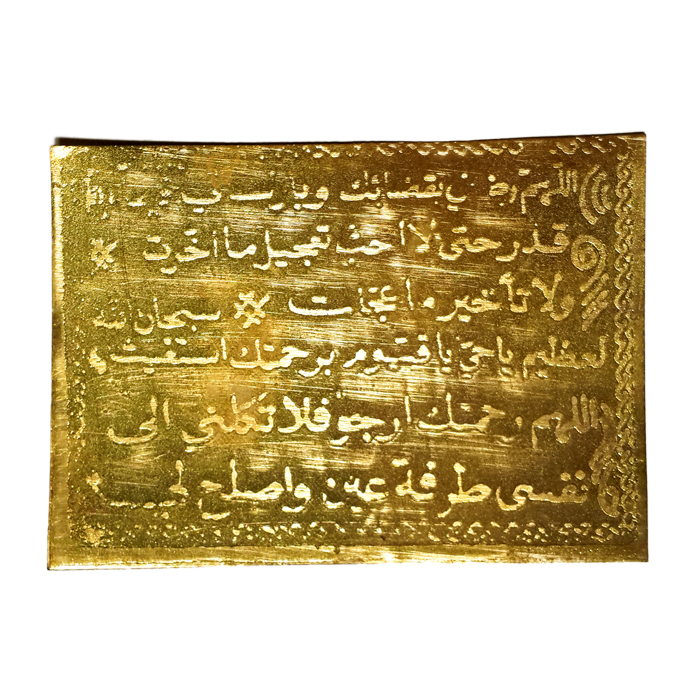 اللهم رضني بقضائك وبارك لي فيما
قدر حتى لا احب تعجيل ما اخرت
ولا تأخير ما عجلت سبحان الله
لعظيم ياحي ياقيوم برحمتك استغيث
اللهم رحمتك ارجو فلا تكلني الى
نفسي طرفة عين واصلح لي